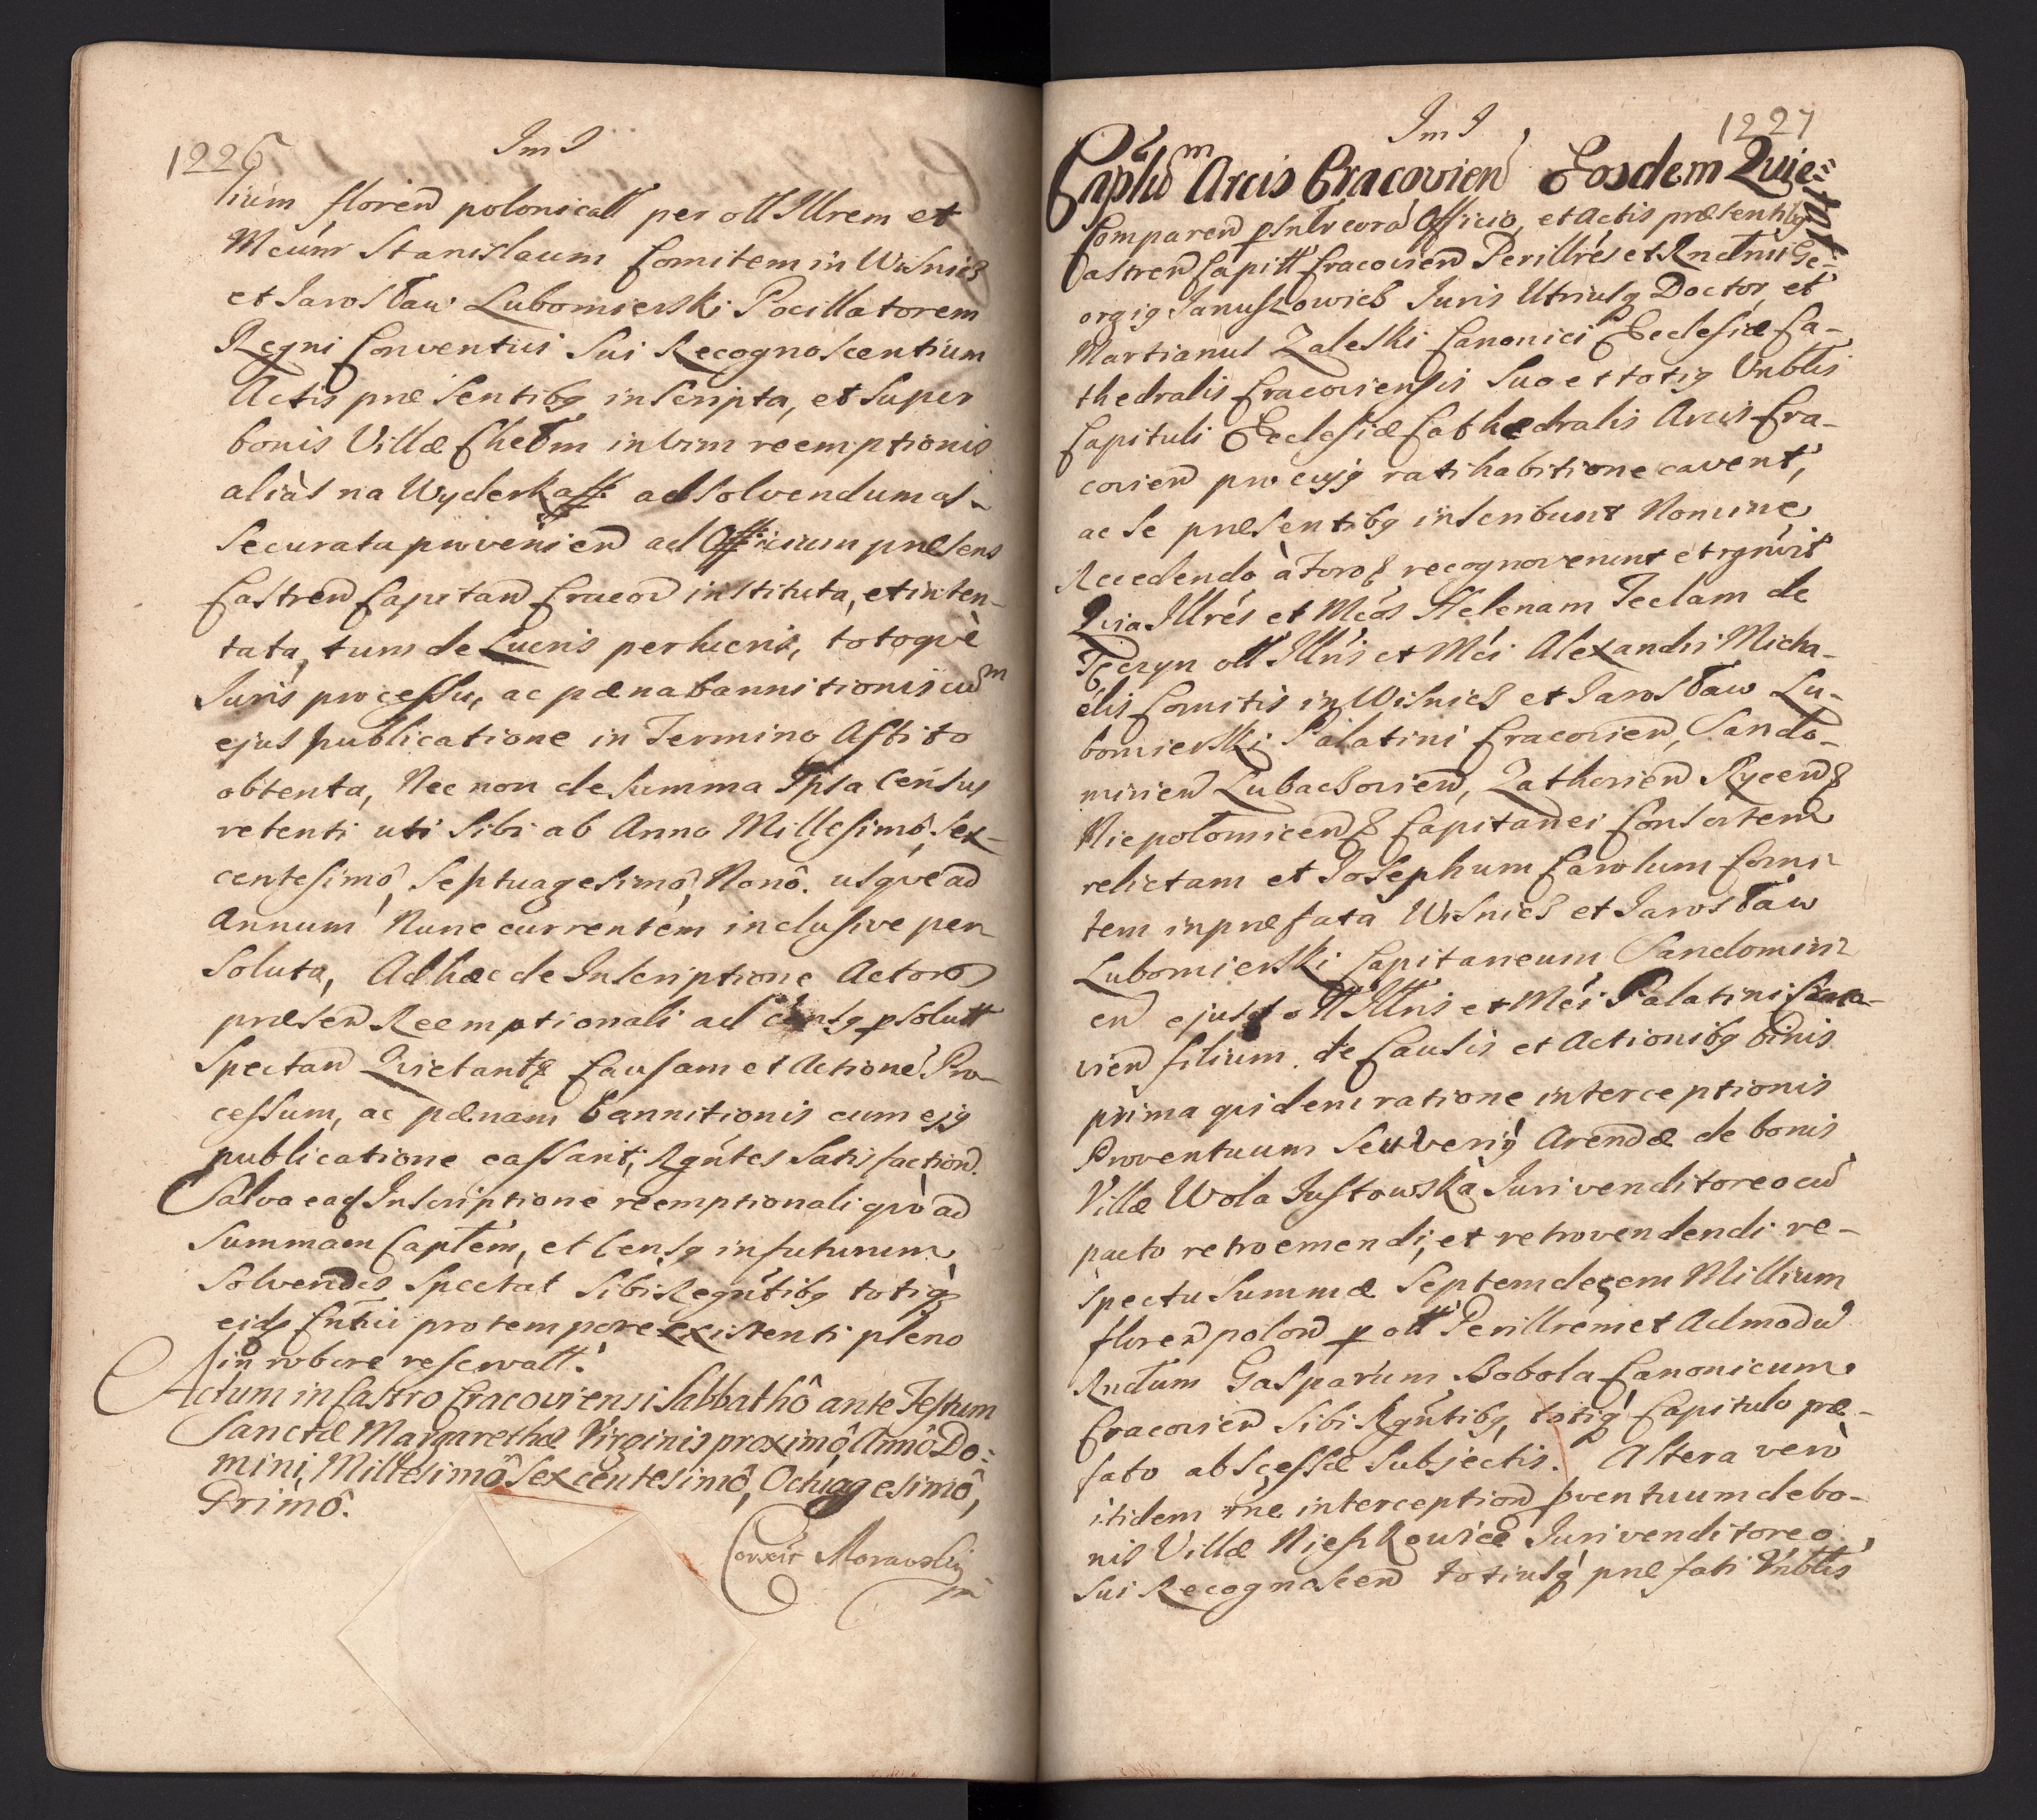 1226
ImI
lium floren polonicall per oll Illrem et
Mcum Stanislaum Comitem in Wisnicz
et Jarosław Lubomierski Pocillatorem
Regni Conventui Sui Recognoscentium
Actis præsentibq inscripta, et super
bonis Villæ Chełm in vim reemptionis
aliàs na Wyderkaff ad solvendum as-
securata provenien ad Officium præsens
Castren Capitan Cracov instituta, et inten-
tata, tum de Lucris perlucris, totoquè
Juris processu, ac pæna bannitionis cum
ejus publicatione in Termino Astito
obtenta, Nec non de summa Ipsa Census
retenti uti sibi ab Anno Millesimô, sex-
centesimô, Septuagesimô, Nonô. usque ad
Annum Nunc currentem inclusive per
soluta, Ad hæc de Inscriptione Actoro
præsen Reemptionali ad censq psolutt
Spectan Quietant Causam et Actione Pro-
cessum, ac pænam bannitionis cum ejq
publicatione cassant, Rgntes satisfaction.
Salva ead Inscriptione reemptionali quò ad
Summam Captem, et Censq in futurum
solvendos spectat sibi Regntibq totiq
eids Cntui pro tempore existenti pleno
in robore reservatt.
Actum in Castro Cracoviensi Sabbathô ante Festum
Sanctæ Margarethæ Virginis proximô, Annô Do:
mini, Millesimô Sexcentesimô, Octuagesimô,
Primô.
Correxit Morawski
mp
ImI
1227
Caplum Arcis Cracovien Eosdem Quie=
tat
Comparen psnlr cora Officio, et Actis præsentibq
Castren Capitt Cracovien Perillrés et Rndmi Ge-
orgiq Januszowicz Juris Utriusq Doctor, et
Martianus Zaleski Canonici Ecclesiæ Ca-
thedralis Cracoviensis suo et totiq Vnblis
Capituli Ecclesiæ Cathædralis Arcis Cra-
covien pro cujq ratihabitione cavent,
ac se præsentibq inscribunt Nomine
Recedendo à Foro recognoverunt et rgnrut
Quia Illrés et Mcas Helenam Teclam de
Tęczyn oll Illris et Mci Alexandri Micha-
elis Comitis in Wisnicz et Jarosław Lu-
bomierski Palatini Cracovien, Sando-
mirien Lubaczovien, Zathorien Rycen
Niepołomicen Capitanei Consortem
relictam et Josephum Carolum Comi
tem in præfata Wisnicz et Jarosław
Lubomierski Capitaneum Sandomiri
en ejusd oll Illris et Mci Palatini Craco-
vien filium. de Causis et Actionibq binis
prima quidem ratione interceptionis
Proventuum seu veriq Arendæ de bonis
Villæ Wola Justowska Jurivenditoreo cu
pacto retroemendi, et retrovendendi re-
spectu Summæ Septemdecem Millium
floren polon p oll Perillrem et Admodu
Rndum Gasparum Bobola Canonicum
Cracovien sibi Rgntibq, totiq Capitulo præ-
fato abscessæ subjectis. Altera verò
itidem rne interception pventuum de bo-
nis Villæ Nieszkowice Jurivenditoreo
sui Recognoscen totiusq præfati Vnblis